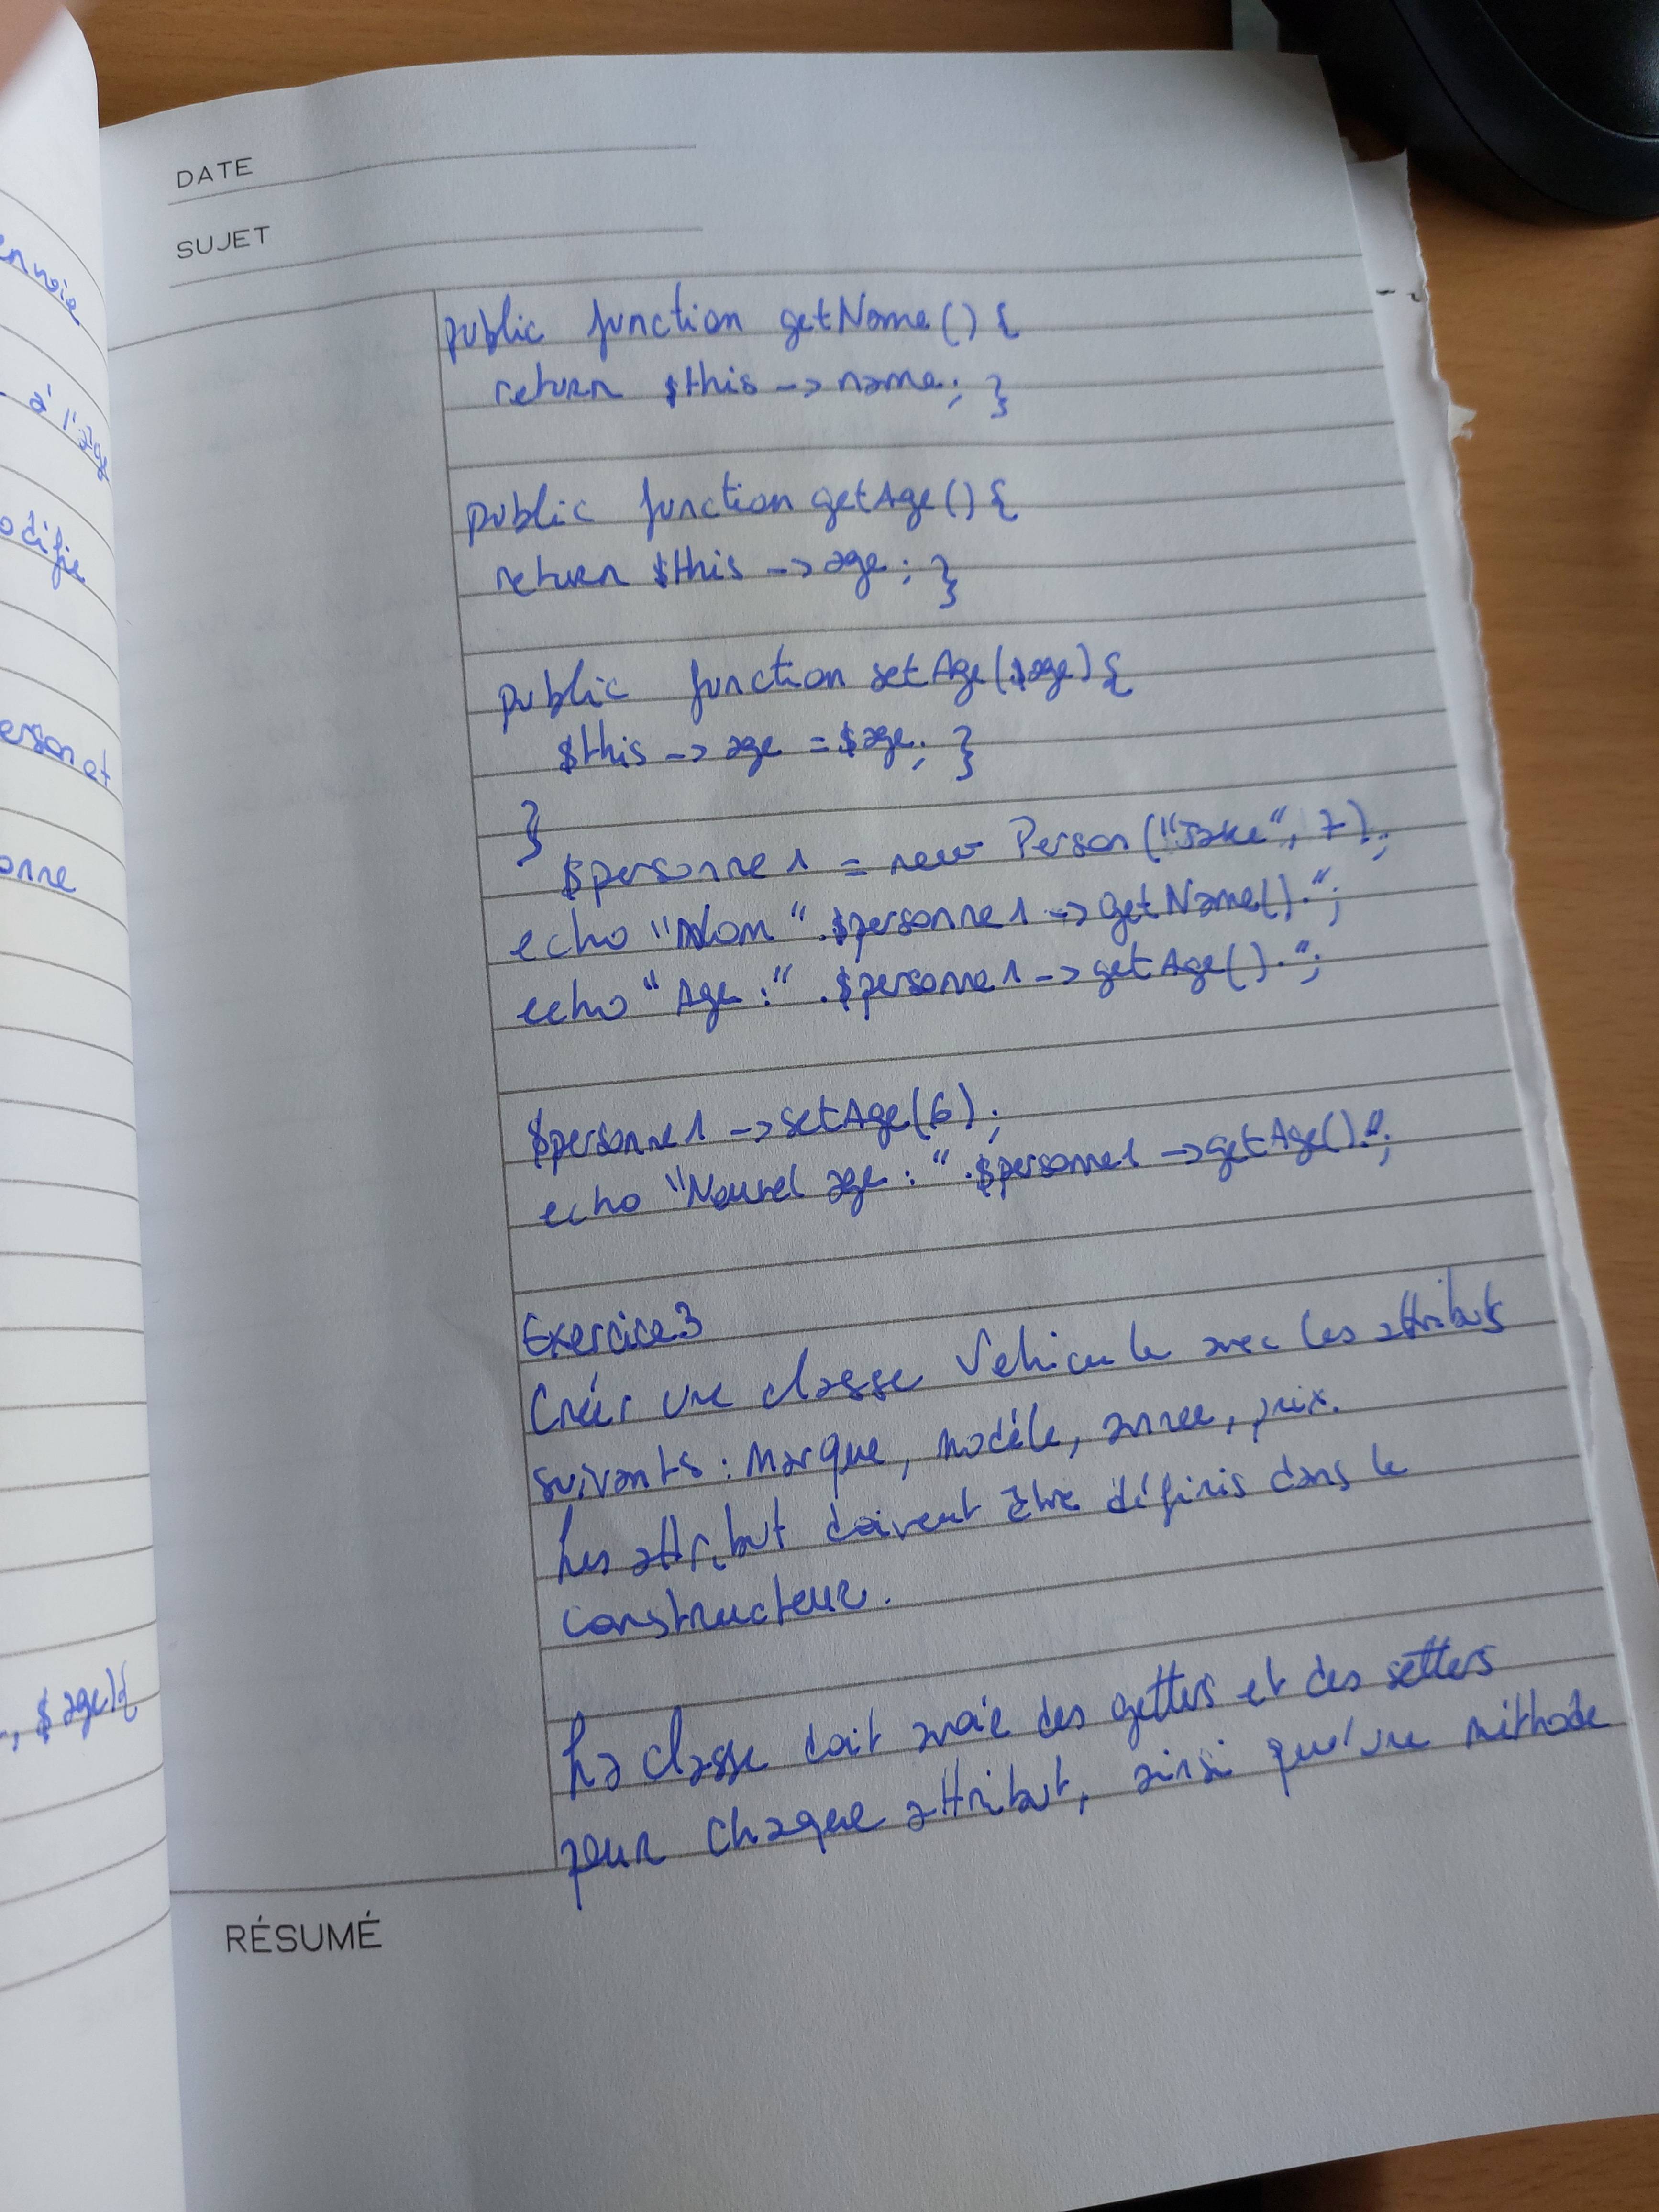 DATE
SUJET
ennoie
à l'age
odifie
erson et
onne
, $age){
public function getName() {
return $this -> name; }
public function getAge() {
return $this -> age ; }
public function setAge($age) {
$this -> age = $age; }
}
$personne1 = new Person("Jake", 7);
echo "Nom " .$personne1 -> getName().";
echo "Age :" .$personne1 -> getAge().";
$personne1 -> setAge(6);
echo "Nouvel age : " .$personne1 -> getAge().";
Exercice 3
Créér une classe Vehicule avec les attributs
suivants : Marque, modèle, annee, prix.
Les attribut doivent être définis dans le
constructeur.
La classe doit avoir des getters et des setters
pour chaque attribut, ainsi qu'une méthode
RÉSUMÉ